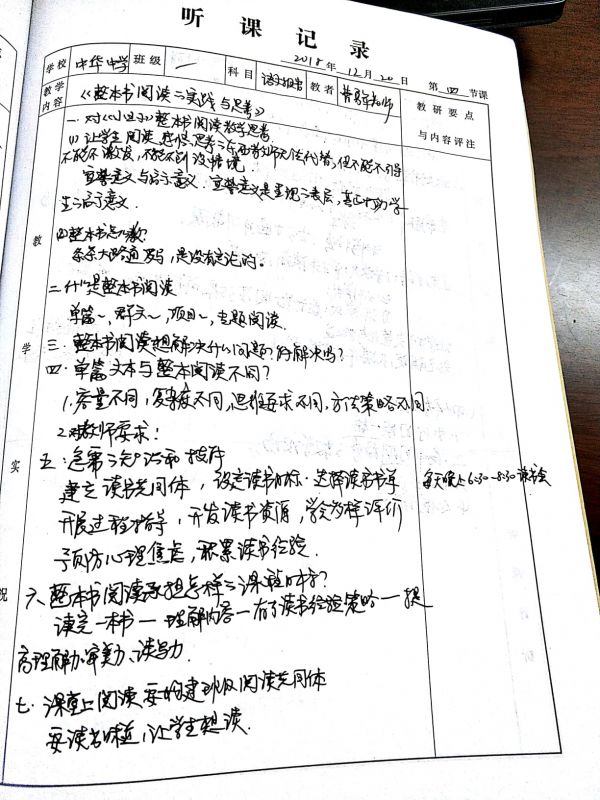 听课记录
2018年12月20日 第四节课
学校 中华中学 班级 一 科目 教者
教学内容 《整本书阅读之实践与思考》
教研要点与内容评注
教学实况
一、对《》整本书阅读教学思考
(1) 让学生阅读、感悟、思考之 教师无法代替,但不能不引导
不能不激发,不能不创设情境
言义与言下意义.言意义是呈现之表层,真正帮助学
生言下意义.
(2) 整本书怎教?
条条大路通罗马,是没有定论的。
二. 什么是整本书阅读
单篇~,群文~,项目~,专题阅读.
三. 整本书阅读想解决什么问题?能解决吗?
四. 单篇文本与整本阅读不同?
1. 容量不同,复杂度不同,思维要求不同,方法策略不同.
2. 对教师要求!
五. 之知识和技能
建立读书共同体,设定读书目标.选择读书书单 每天晚上6:30-8:30读书会
开展过程指导,开发读书资源,多样评价
预防心理焦虑,积累读书经验.
六. 整本书阅读承担怎样之课程时?
读完一本书—理解内容—有了读书经验策略—提
高理解力.审美力、读写力
七. 课堂上阅读要构建班级阅读共同体
要读书,让学生想读.